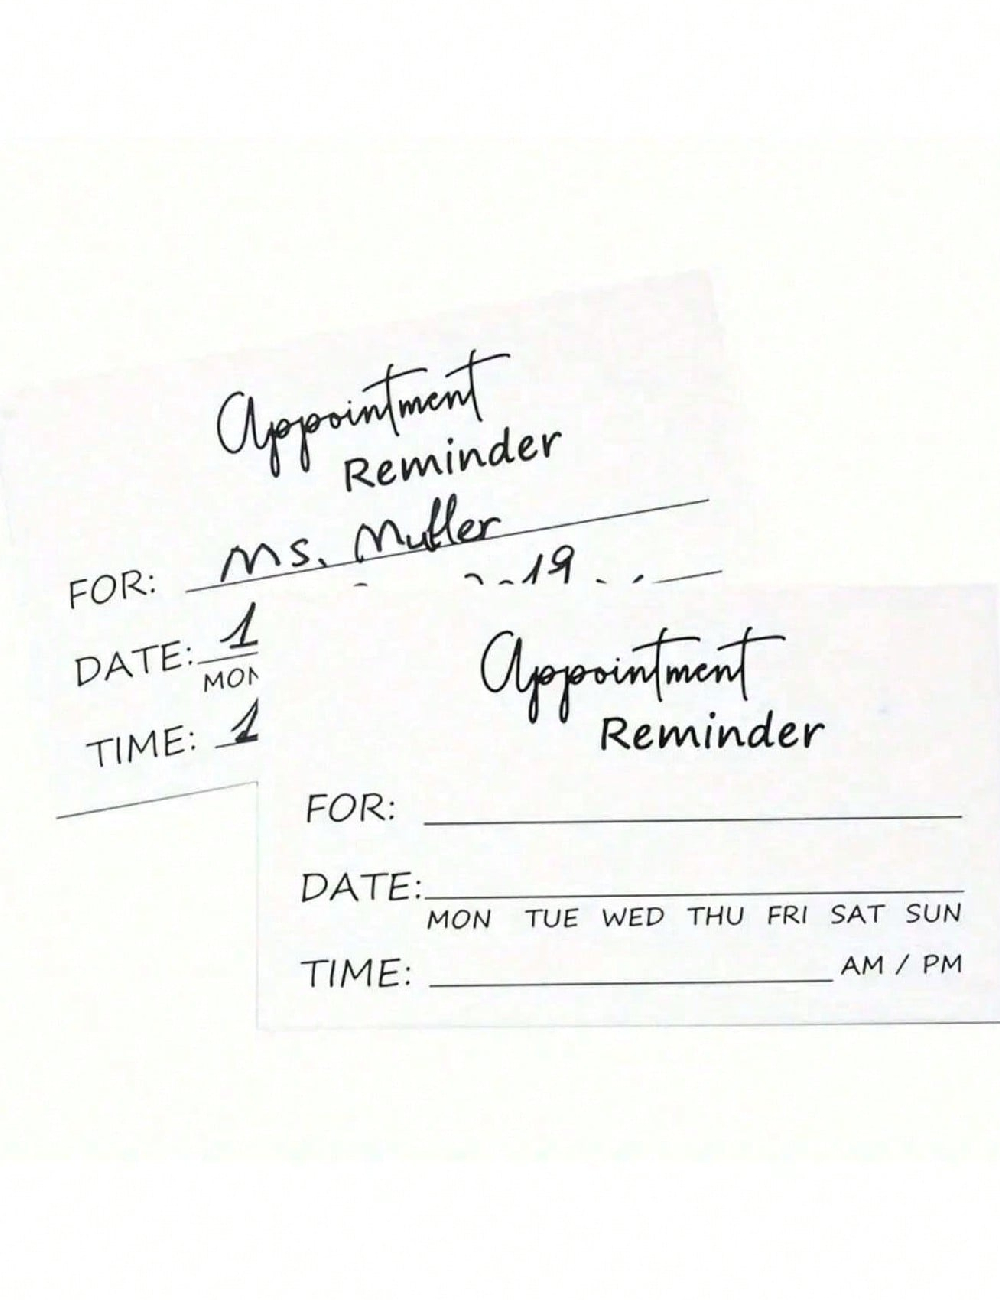 Appointment
Reminder
FOR: Ms. Muller
DATE: 1 19
MON
TIME: 1
Appointment
Reminder
FOR:
DATE:
MON TUE WED THU FRI SAT SUN
TIME: AM / PM